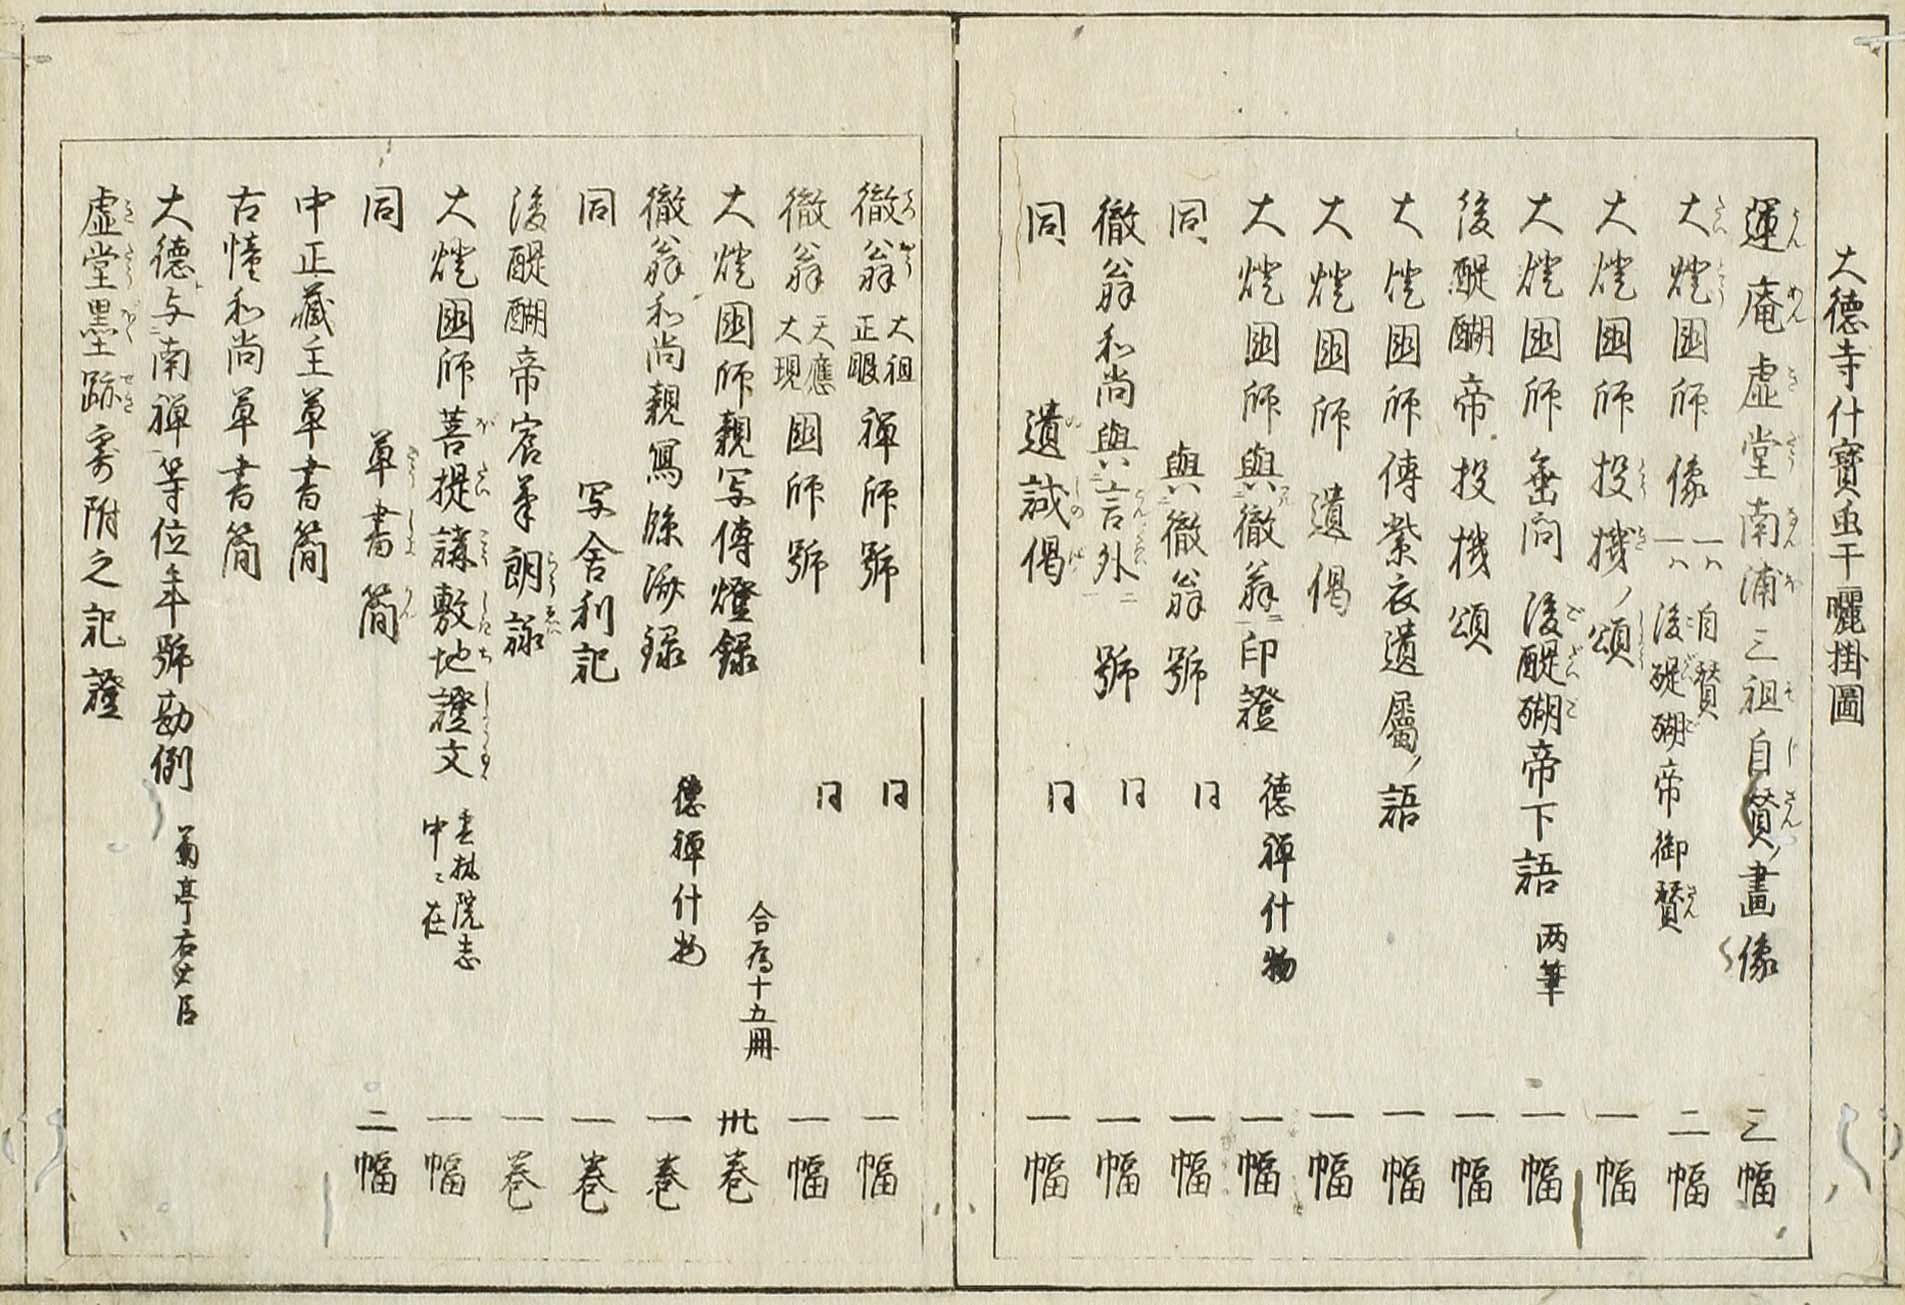 大徳寺什寶虫干曬掛圖
運庵虚堂南浦三祖自賛ノ畫像 三幅
大燈國師像 一ハ自賛 一ハ後醍醐帝御賛 二幅
大燈國師投機ノ頌 一幅
大燈國師垂問 後醍醐帝下語 两筆 一幅
後醍醐帝投機頌 一幅
大燈國師傳紫衣遺属ノ語 一幅
大燈國師 遺偈 一幅
大燈國師與徹翁印證 德禅什物 一幅
同 與徹翁號 同 一幅
徹翁和尚與言外號 同 一幅
同 遺誡偈 同 一幅
徹翁 大祖正眼 禅師號 同 一幅
徹翁 天應大現 國師號 同 一幅
大燈國師親写傳燈録 合為十五冊 卅巻
徹翁和尚親寫録 德禅什物 一巻
同 写舎利記 一巻
後醍醐帝宸筆朗詠 一巻
大燈國師菩提講敷地證文 院志中ニ在 一幅
同 草書簡 二幅
中正蔵主草書簡
古幢和尚草書簡
大徳与南禅等位年號勘例 菊亭右大臣
虚堂墨跡寄附之記證